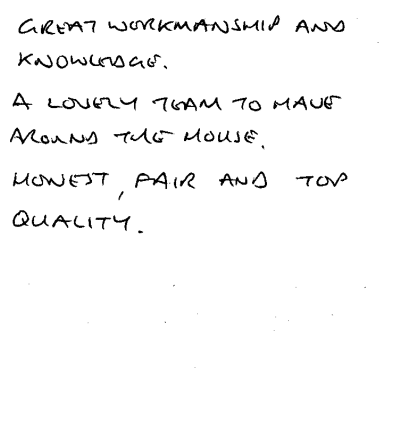 GREAT WORKMANSHIP AND
KNOWLEDGE.
A LOVELY TEAM TO HAVE
AROUND THE HOUSE.
HONEST, FAIR AND TOP
QUALITY.